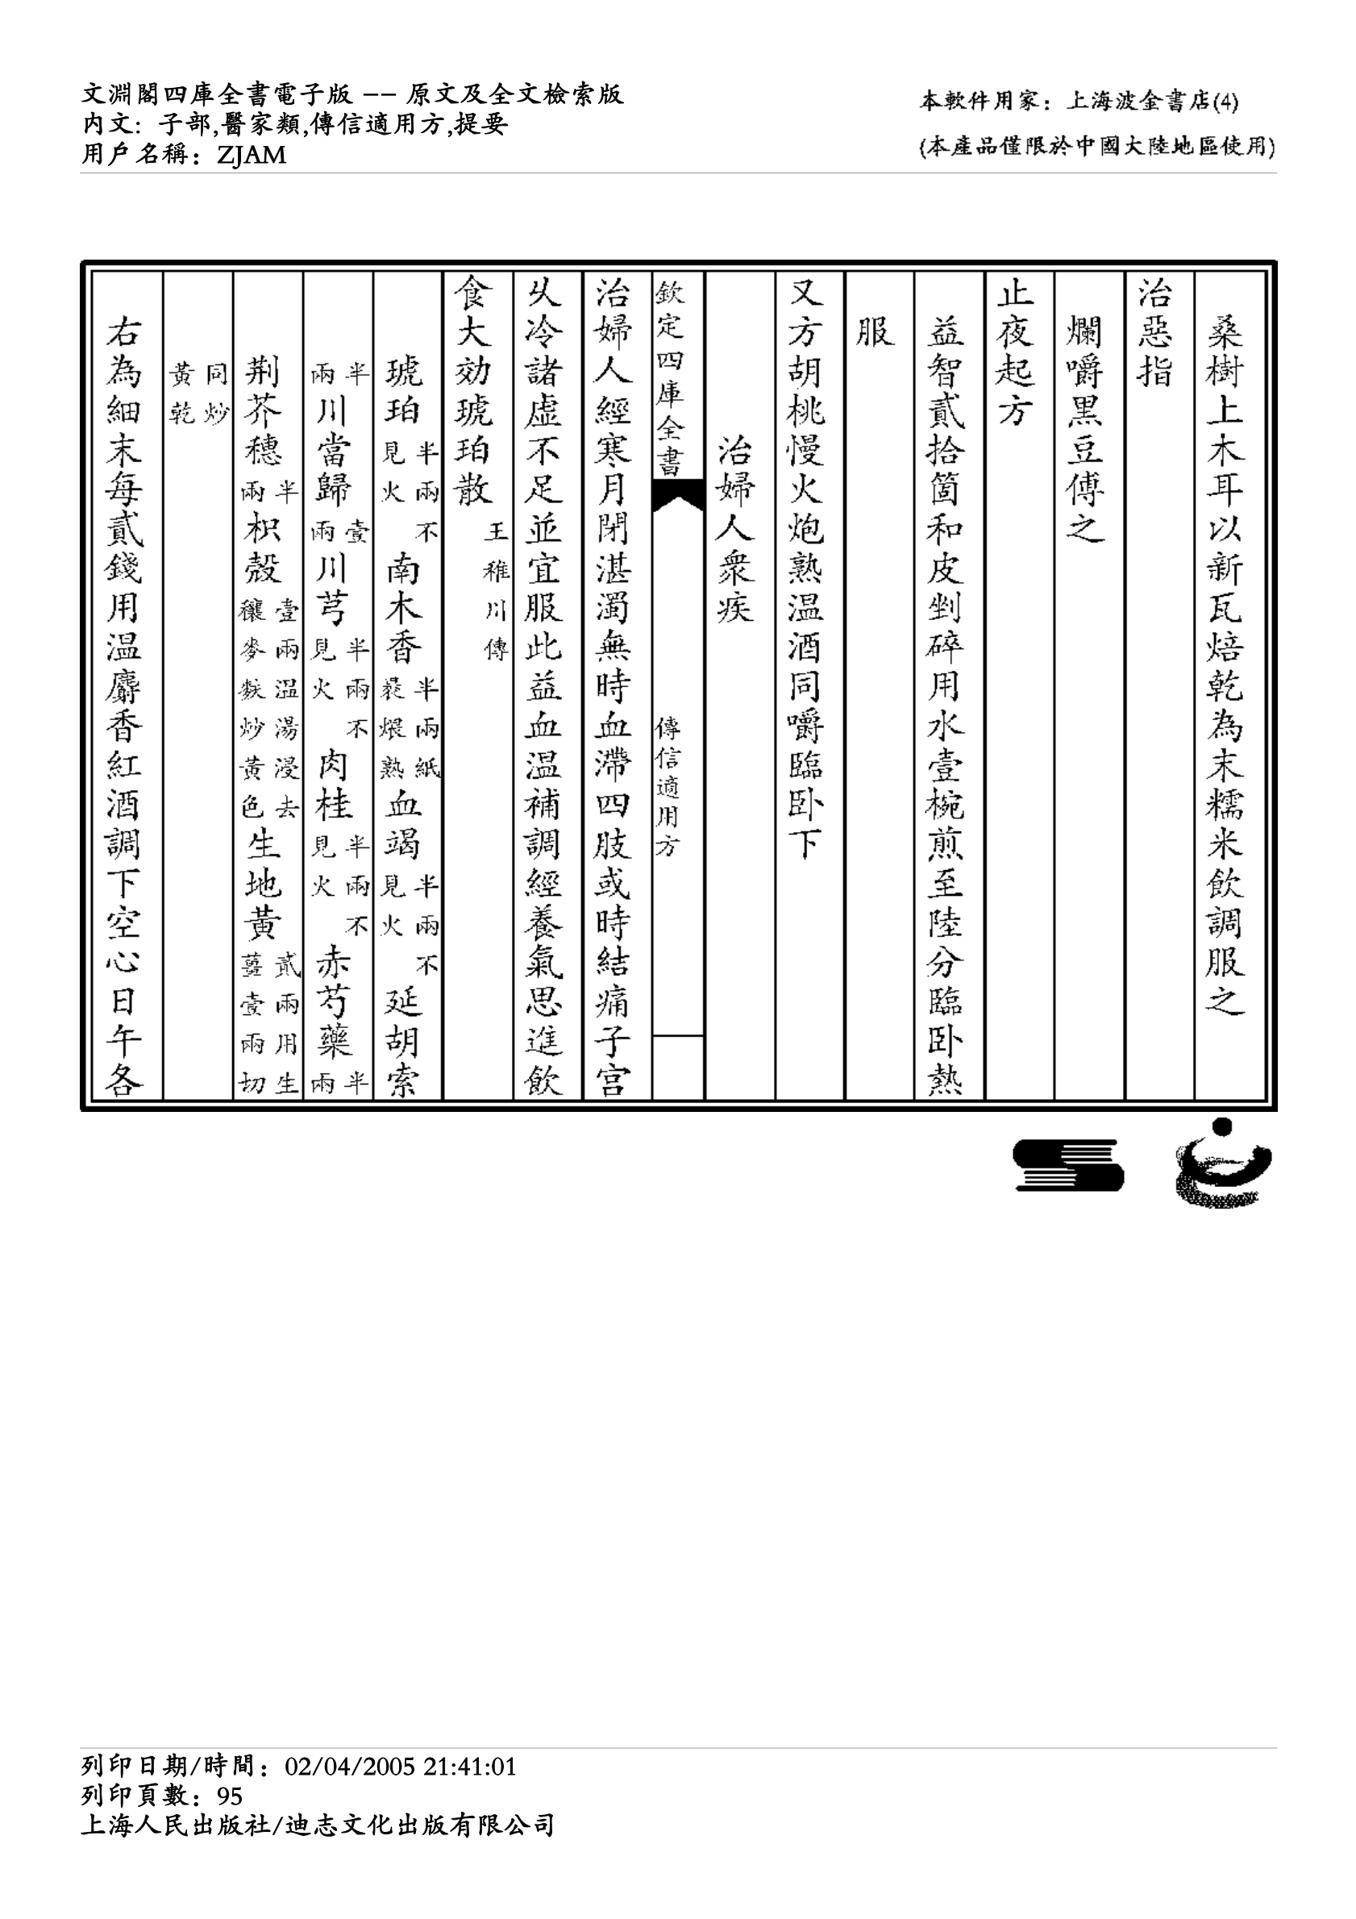 文淵閣四庫全書電子版 −− 原文及全文檢索版
内文: 子部,醫家類,傳信適用方,提要
用戶名稱: ZJAM
本軟件用家: 上海波金書店(4)
(本產品僅限於中國大陸地區使用)
桑樹上木耳以新瓦焙乾為末糯米飲調服之
治惡指
爛嚼黑豆傅之
止夜起方
益智貳拾箇和皮剉碎用水壹椀煎至陸分臨卧熱
服
又方胡桃慢火炮熟温酒同嚼臨卧下
治婦人衆疾
欽定四庫全書 傳信適用方
治婦人經寒月閉湛濁無時血滯四肢或時結痛子宫
从冷諸虚不足並宜服此益血温補調經養氣思進飲
食大効琥珀散王稚川傳
琥珀半兩不見火南木香半兩紙裹煨熟血竭半兩不見火延胡索
半兩川當歸壹兩川芎半兩不見火肉桂半兩不見火赤芍藥半兩
荆芥穗半兩枳殼壹兩温湯浸去穰麥麩炒黃色生地黃貳兩用生薑壹兩切
同炒黃乾
右為細末每貳錢用温麝香紅酒調下空心日午各
列印日期/時間: 02/04/2005 21:41:01
列印頁數: 95
上海人民出版社/迪志文化出版有限公司